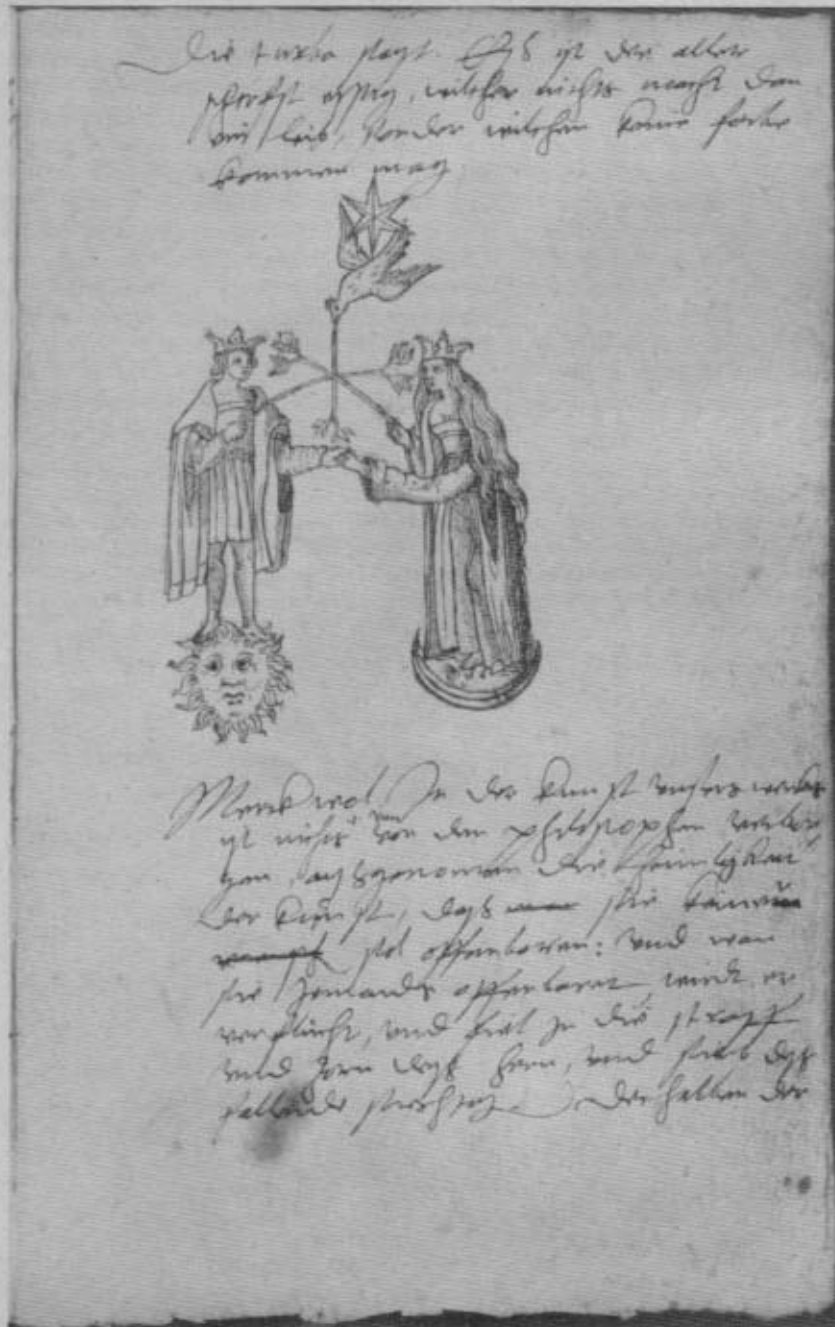 Die turba sagt. Es ist der aller
scherfst essig, welcher nichts macht dan
ein leib, sonder welchen keine farbe
kommen mag
Merck wol, In der kunst unsers wercks
ist nichts von den philosophen verbor
gen, ausgenomen die heimlikait
der kunst, das sie
sol offenbaren: und wan
sie Jemands offenbaret wirdt er
verflucht, und fiel in die straff
und zorn des hern, und sturb des
fallende siechtag Derhalben der